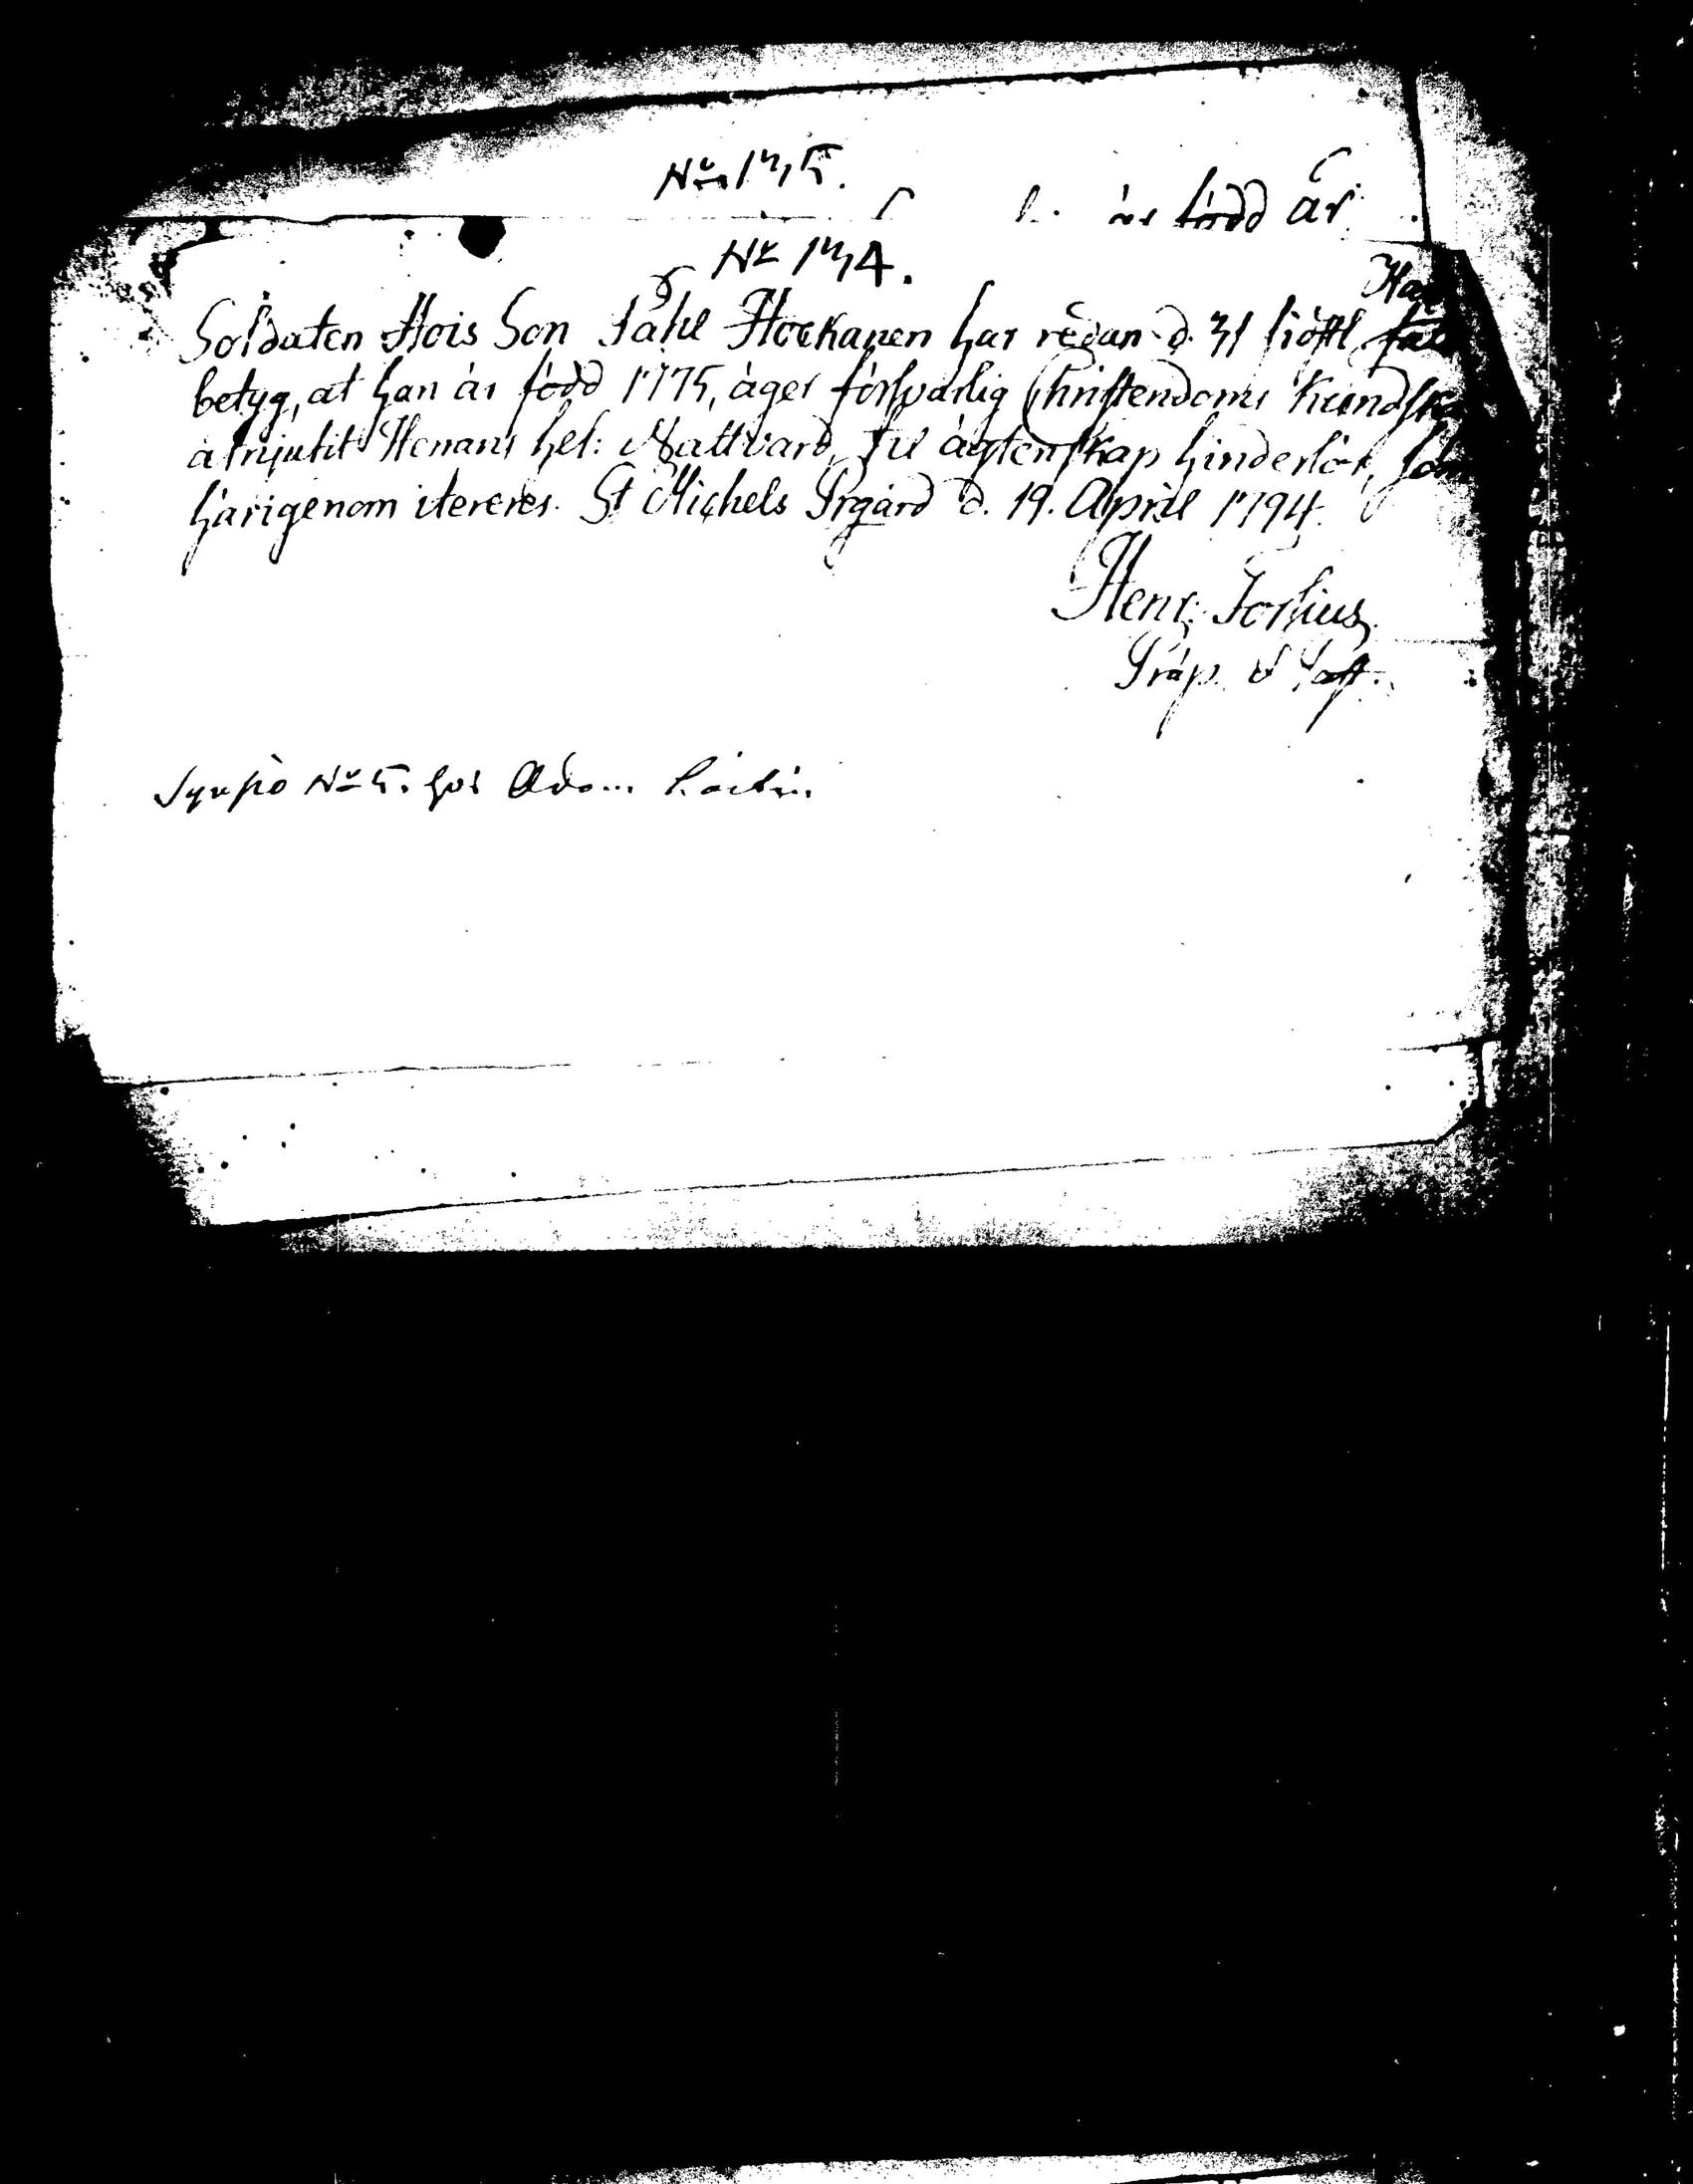 No 135.
är född år
No 134.
Soldaten Hois Son Påhl Hockanen har redan d. 31 sidstl
betyg, at han är född 1775, äger försvarlig Christendoms Kundska
åtnjutit Herrans hel: Nattvard, til ägtenskap hinderlös, som
härigenom itereres. St Michels Prgård d. 19. April 1794.
Henr: Forsius
Präp. & Past.
No 5. hos